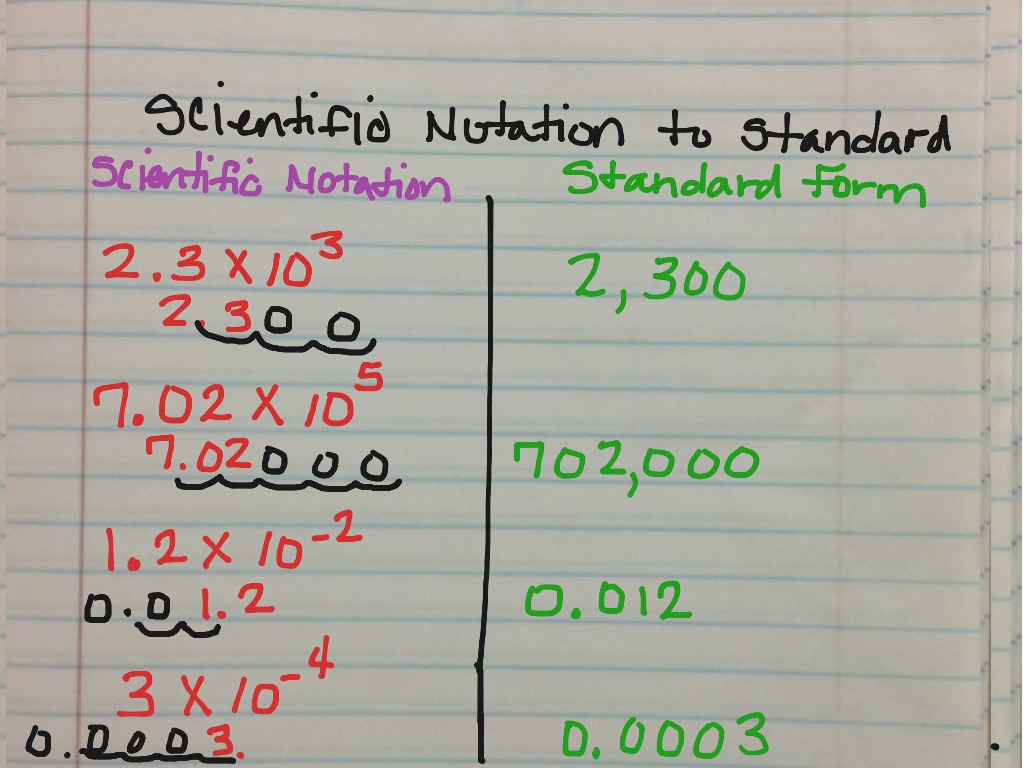 Scientific Notation to Standard
Scientific Notation Standard Form
2.3 × 10³ 2,300
2.300
7.02 × 10⁵
7.02000 702,000
1.2 × 10⁻²
0.01.2 0.012
3 × 10⁻⁴
0.0003. 0.0003